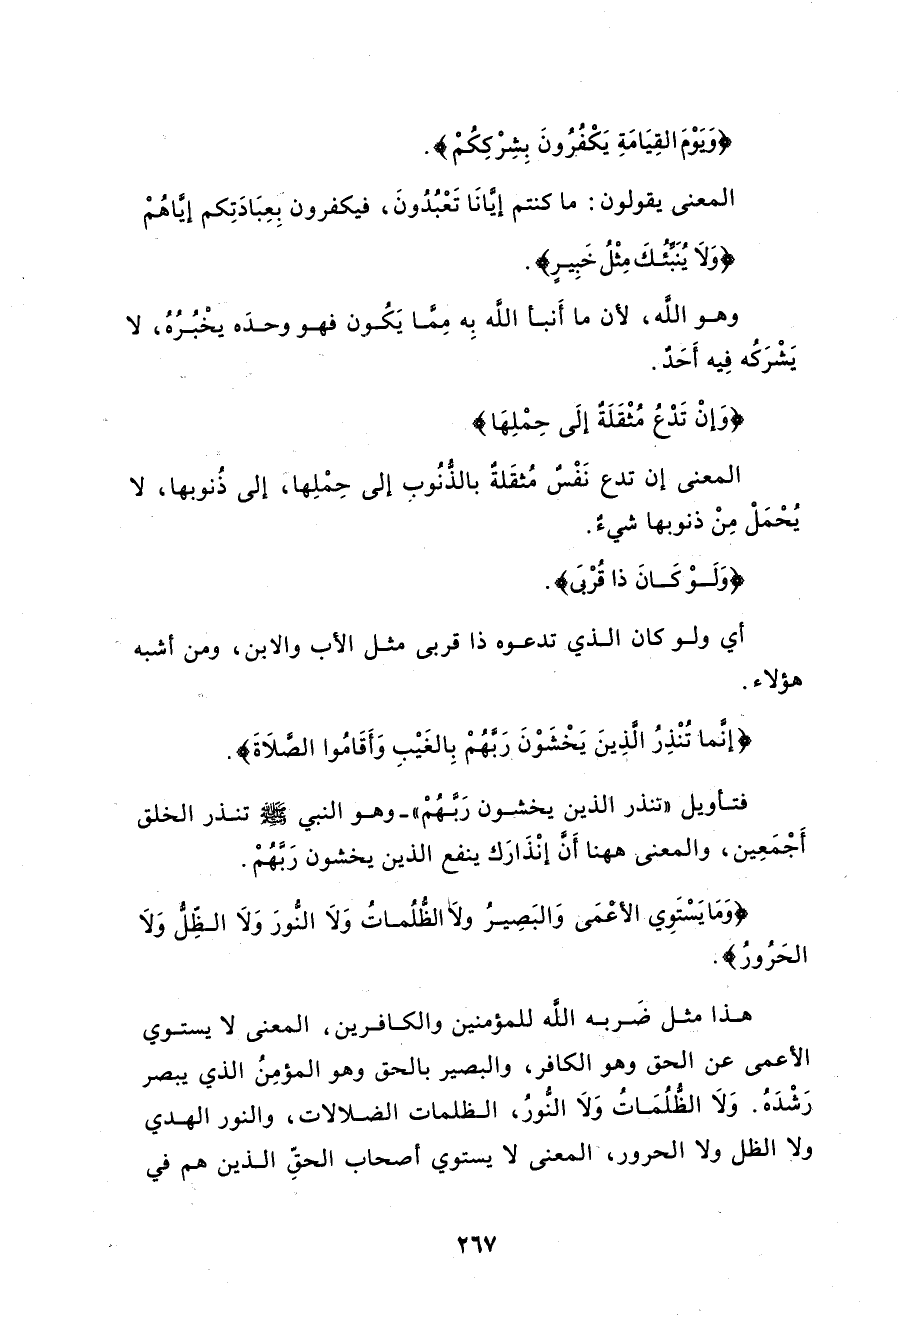 ﴿وَيَوْمَ القِيَامَةِ يَكْفُرُونَ بِشِرْكِكُمْ﴾.
المعنى يقولون: ما كنتم إيَّانَا تَعْبُدُونَ، فيكفرون بِعِبَادَتِكم إيَّاهُمْ
﴿وَلَا يُنَبِّئُكَ مِثْلُ خَبِيرٍ﴾.
وهو اللَّه، لأن ما أَنبأ اللَّه بِه مِمَّا يَكُون فهو وحدَه يخْبُرُهُ، لا
يَشْرَكُه فِيه أَحَدٌ.
﴿وَإنْ تَدْعُ مُثْقَلَةٌ إلَى حِمْلِهَا﴾
المعنى إن تدع نَفْسٌ مُثقَلةٌ بالذُّنُوبِ إلى حِمْلِها، إلى ذُنوبها، لا
يُحْمَلْ مِنْ ذنوبها شيءٌ.
﴿وَلَوْ كَانَ ذا قُرْبَى﴾.
أي ولو كان الذي تدعوه ذا قربى مثل الأب والابن، ومن أشبه
هؤلاء.
﴿إنَّما تُنْذِرُ الَّذِينَ يَخْشَوْنَ رَبَّهُمْ بِالغَيْبِ وَأَقَامُوا الصَّلَاةَ﴾.
فتأويل «تنذر الذين يخشون رَبَّهُمْ» - وهو النبي ﷺ تنذر الخلق
أَجْمَعِين، والمعنى ههنا أَنَّ إنْذَارَكَ ينفع الذين يخشون رَبَّهُمْ.
﴿وَمَا يَسْتَوِي الأعْمَى وَالبَصِيرُ ولَا الظُّلُماتُ وَلَا النُّورَ وَلَا الظِّلُّ وَلَا
الحَرُورُ﴾.
هذا مثل ضَربه اللَّه للمؤمنين والكافرين، المعنى لا يستوي
الأعمى عن الحق وهو الكافر، والبصير بالحق وهو المؤمِنُ الذي يبصر
رَشْدَهُ. وَلَا الظُّلُمَاتُ وَلَا النُّورُ، الظلمات الضلالات، والنور الهدي
ولا الظل ولا الحرور، المعنى لا يستوي أصحاب الحقِّ الذين هم في
٢٦٧